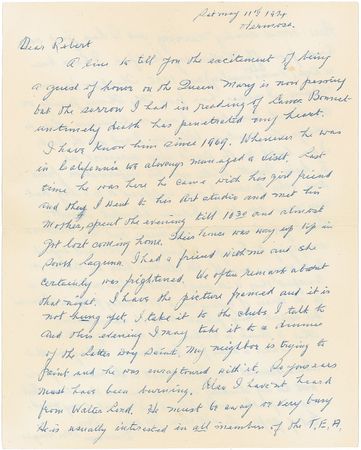 Sat May 11th 1974
Hermosa.
Dear Robert
A line to tell you the excitement of being
a guest of honor on the Queen Mary is now passing
but the sorrow I had in reading of Bonnet
untimely death has penetrated my heart.
I have know him since 1969. Whenever he was
in California we always managed a visit, last
time he was here he came with his girl friend
and they I went to his Art studio and met his
Mother, spent the evening till 10 30 and almost
got lost coming home. This was way up up in
South Laguna. I had a friend with me and she
certainly was frightened. We often remark about
that night. I have the picture framed and it is
not hung yet, I take it to the clubs I talk to
and this evening I may take it to a dinner
of the Latter Day Saints. My neighbor is trying to
paint and he was enraptured with it. So your ears
must have been burning. Also I havent heard
from Walter Lord. He must be away or very busy
He is usually interested in all members of the T.E.A.